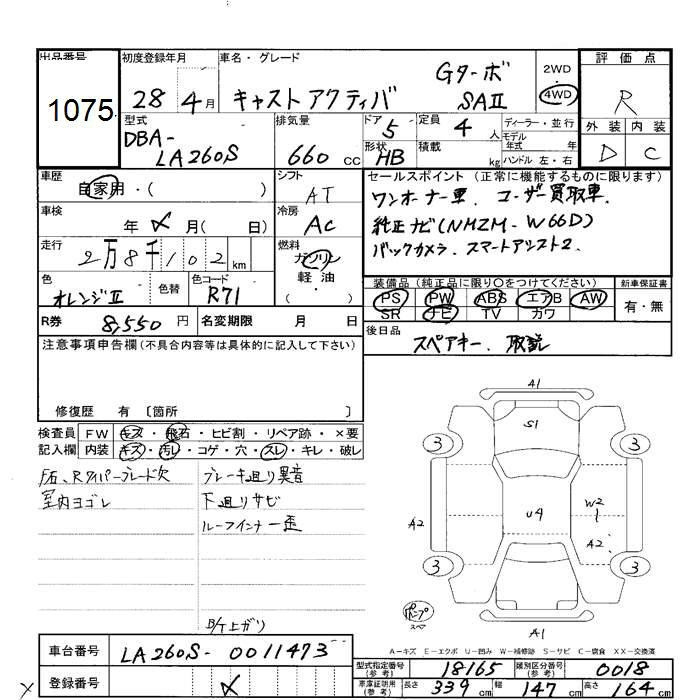 出品番号
1075
初度登録年月
28年4月
車名・グレード
キャスト アクティバ
Gターボ
SAⅡ
2WD
4WD
評価点
R
外装 内装
D C
型式
DBA-
LA260S
排気量
660 cc
ドア 5
形状 HB
定員 4人
積載 kg
ディーラー・並行
モデル年式 年
ハンドル 左・右
車歴
自家用・( )
シフト
AT
車検
年 メ 月( 日)
冷房
AC
走行
2万8千102 km
燃料
ガソリン
軽油
( )
色
オレンジⅡ
色替
色コード
R71
R券 8,550 円
名変期限 月 日
セールスポイント (正常に機能するものに限ります)
ワンオーナー車、ユーザー買取車
純正ナビ(NMZM-W66D)
バックカメラ、スマートアシスト2.
装備品 (純正品に限り○をつけてください)
新車保証書
PS PW ABS エアB AW
SR ナビ TV カワ
有・無
後日品
スペアキー、取説
注意事項申告欄(不具合内容等は具体的に記入して下さい)
修復歴 有 〔箇所 〕
検査員記入欄
FW キズ・飛石・ヒビ割・リペア跡・×要
内装 キズ・汚レ・コゲ・穴・スレ・キレ・破レ
F石、Rワイパーブレード欠
室内ヨゴレ
ブレーキ廻り異音
下廻りサビ
ルーフインナー歪
B/T上ガリ
A1
S1
3 3
A2
U4
W2
A2
3 3
ポンプ
スペア
A1
A-キズ E-エクボ U-凹み W-補修跡 S-サビ C-腐食 XX-交換済
車台番号 LA260S-0011473
登録番号 メ
型式指定番号(参考) 18165
類別区分番号(参考) 0018
車庫証明用(参考) 長さ 339 cm 幅 147 cm 高さ 164 cm